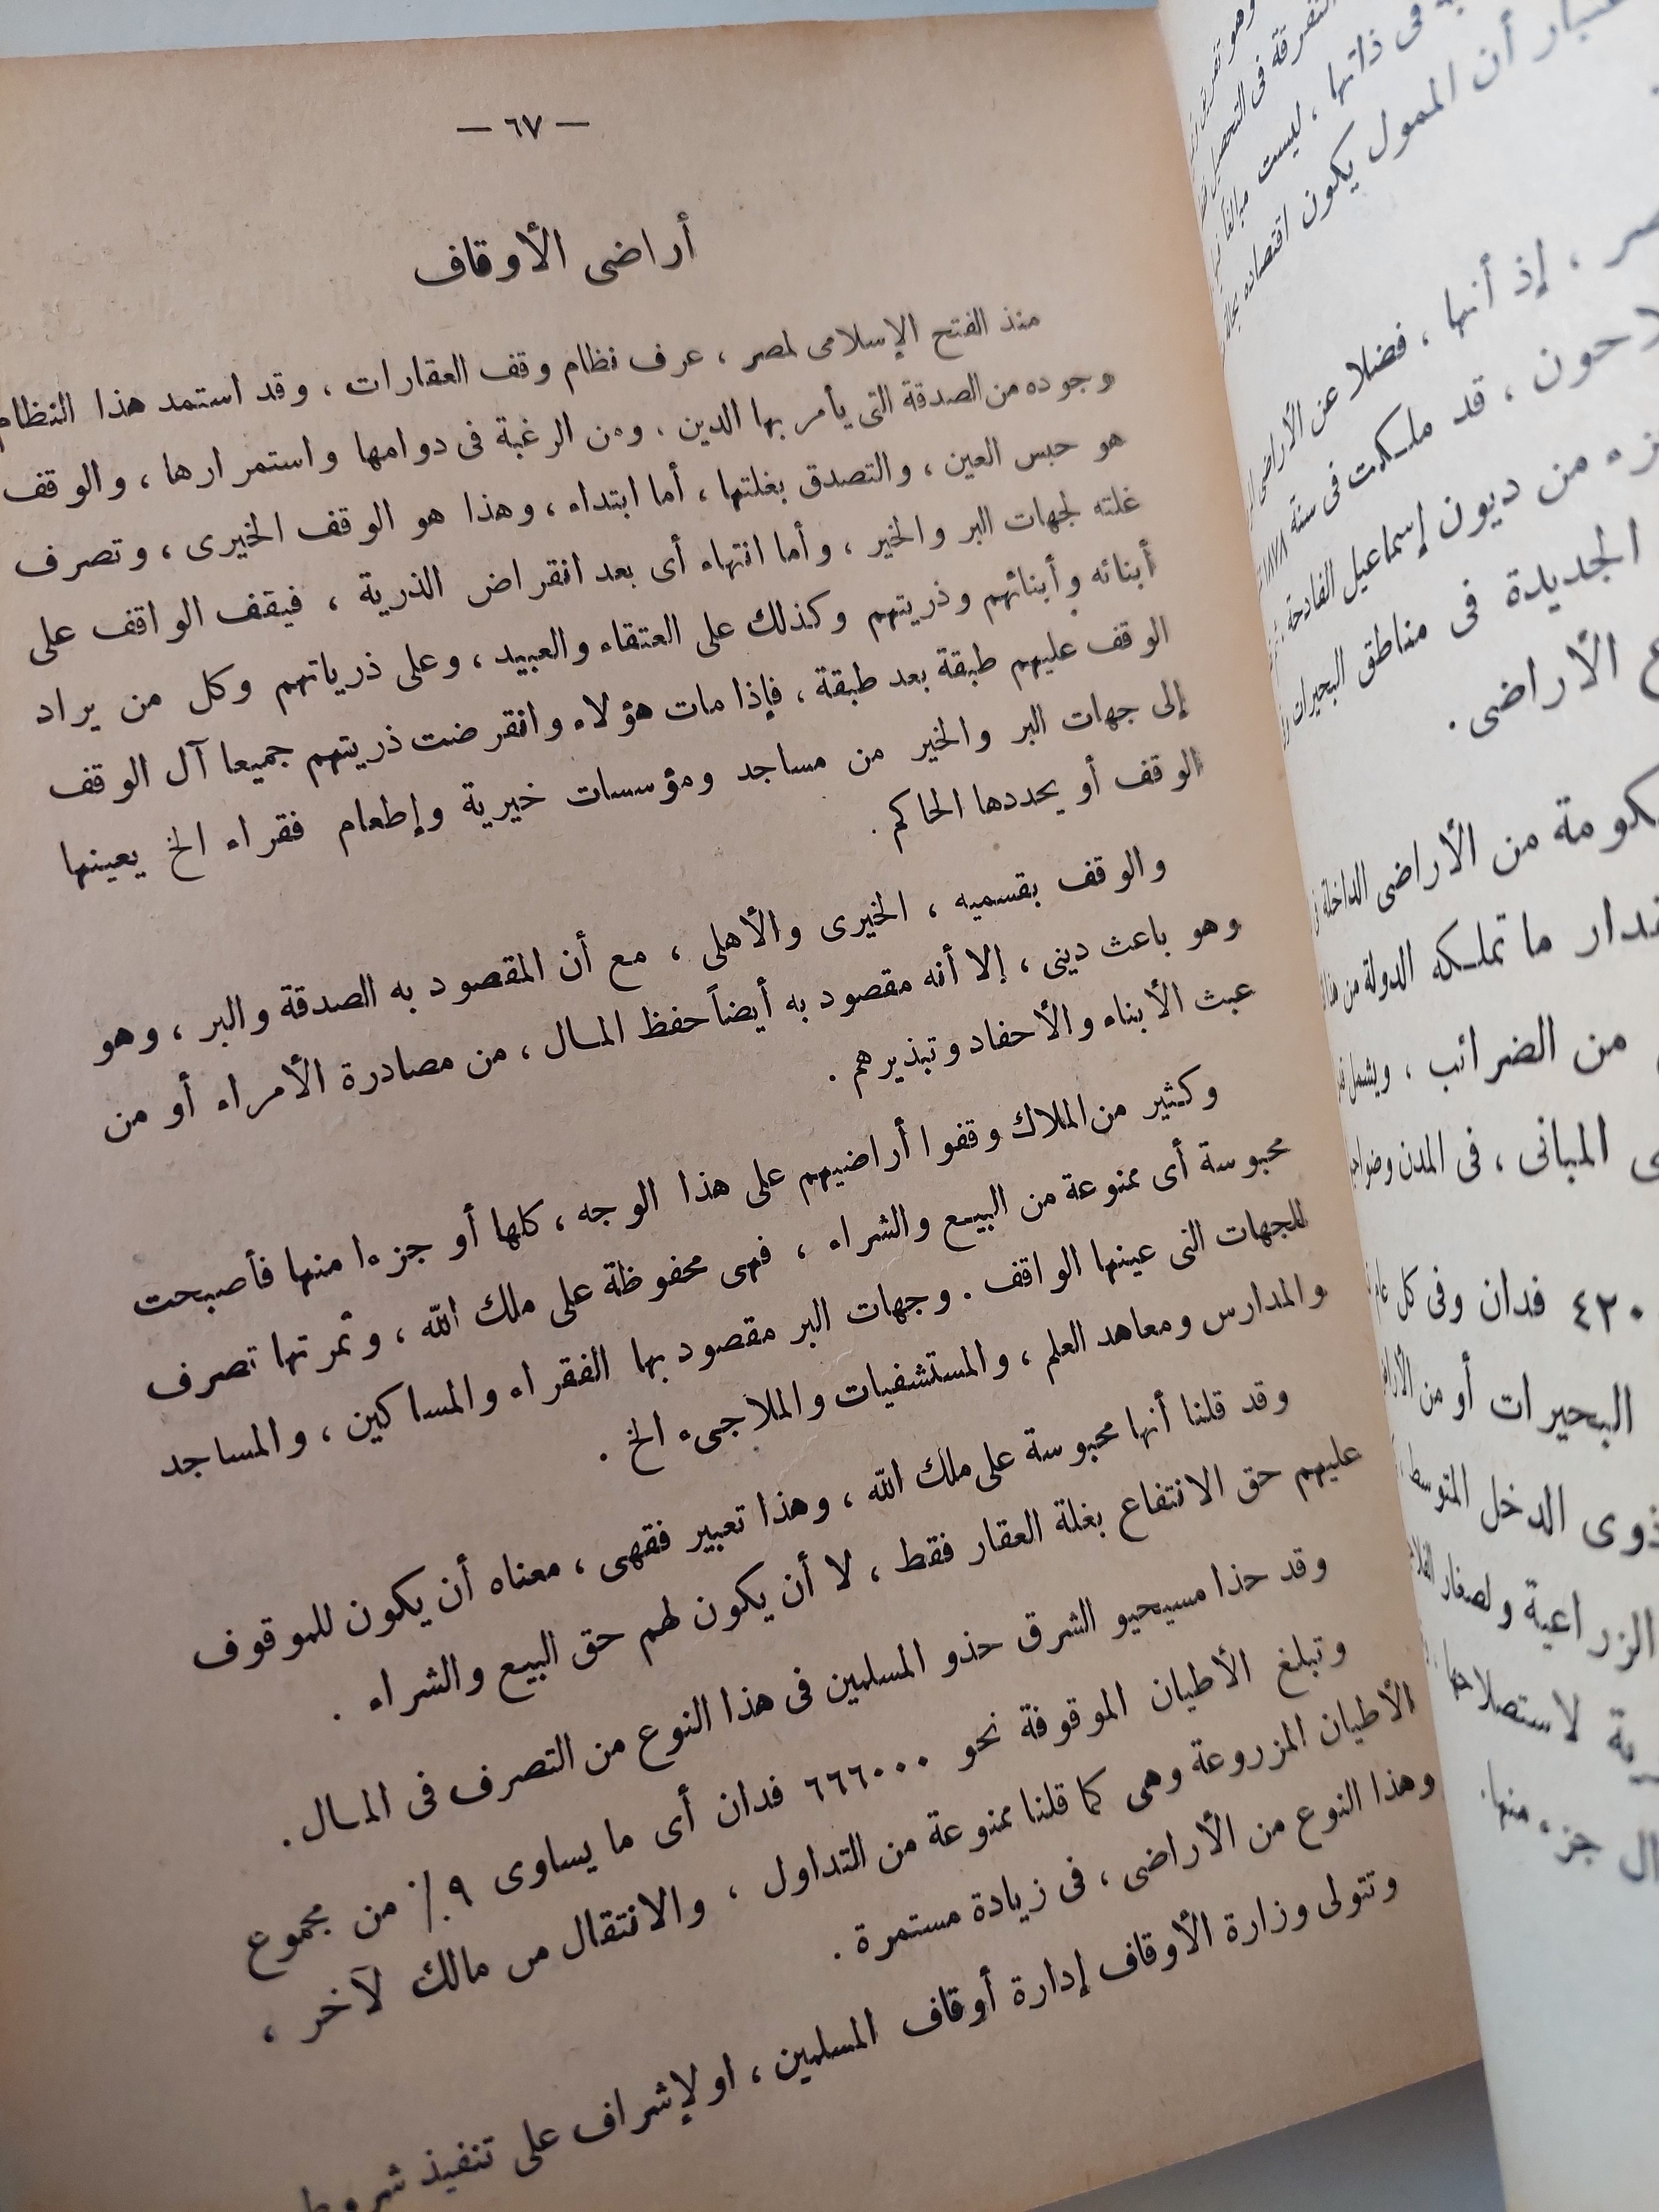 — ٦٧ —
أراضى الأوقاف
منذ الفتح الإسلامى لمصر ، عرف نظام وقف العقارات ، وقد استمد هذا النظام
وجوده من الصدقة التى يأمر بها الدين . ومن الرغبة فى دوامها واستمرارها ، والوقف
هو حبس العين ، والتصدق بغلتها ، أما ابتداء ، وهذا هو الوقف الخيرى ، وتصرف
غلته لجهات البر والخير ، وأما انتهاء أى بعد انقراض الذرية ، فيقف الواقف على
أبنائه وأبنائهم وذريتهم وكذلك على العتقاء والعبيد ، وعلى ذرياتهم وكل من يراد
الوقف عليهم طبقة بعد طبقة ، فإذا مات هؤلاء وانقرضت ذريتهم جميعا آل الوقف
إلى جهات البر والخير من مساجد ومؤسسات خيرية وإطعام فقراء الخ يعينها
الوقف أو يحددها الحاكم .
والوقف بقسميه ، الخيرى والأهلى ، مع أن المقصود به الصدقة والبر ، وهو
وهو باعث دينى ، إلا أنه مقصود به أيضاً حفظ المال ، من مصادرة الأمراء أو من
عبث الأبناء والأحفاد وتبذيرهم .
وكثير من الملاك وقفوا أراضيهم على هذا الوجه ، كلها أو جزءا منها فأصبحت
محبوسة أى ممنوعة من البيع والشراء ، فهى محفوظة على ملك الله ، وثمرتها تصرف
للجهات التى عينها الواقف . وجهات البر مقصود بها الفقراء والمساكين ، والمساجد
والمدارس ومعاهد العلم ، والمستشفيات والملاجىء الخ .
وقد قلنا أنها محبوسة على ملك الله ، وهذا تعبير فقهى ، معناه أن يكون للموقوف
عليهم حق الانتفاع بغلة العقار فقط ، لا أن يكون لهم حق البيع والشراء .
وقد حذا مسيحيو الشرق حذو المسلمين فى هذا النوع من التصرف فى المال .
وتبلغ الأطيان الموقوفة نحو ٦٦٦٠٠٠ فدان أى ما يساوى ٩ ٪ من مجموع
الأطيان المزروعة وهى كما قلنا ممنوعة من التداول ، والانتقال من مالك لآخر ،
وهذا النوع من الأراضى ، فى زيادة مستمرة .
وتتولى وزارة الأوقاف إدارة أوقاف المسلمين ، اولإشراف على تنفيذ شروط
التفرقة فى
فى ذاتها ، ليست
أن الممول يكون اقتصاده
، إذ أنها ، فضلا عن الأراضى
، قد ملكت فى سنة ١٨٧٨
من ديون إسماعيل الفادحة
الجديدة فى مناطق البحيرات
الأراضى .
من الأراضى الداخلة
ما تملكه الدولة من
من الضرائب ، ويشمل
المبانى ، فى المدن
٤٢٠ فدان وفى كل عام
البحيرات أو من
ذوى الدخل المتوسط
الزراعية ولصغار
لاستصلاحها
جزء منها .